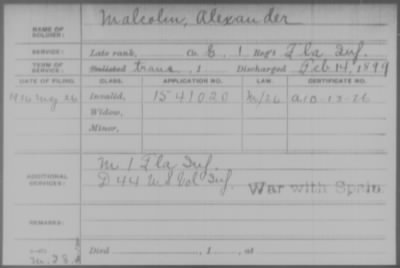 NAME OF SOLDIER: Malcolm, Alexander
SERVICE: Late rank, Co. E, 1 Reg't Fla Inf.
TERM OF SERVICE: Enlisted trans, 1 Discharged Feb 14, 1899
DATE OF FILING. CLASS. APPLICATION NO. LAW. CERTIFICATE NO.
Invalid, 1541020
Widow,
Minor,
ADDITIONAL SERVICES: M 1 Fla Inf.
D 44 U S Vol Inf. War with Spain
REMARKS:
Died , 1 , at